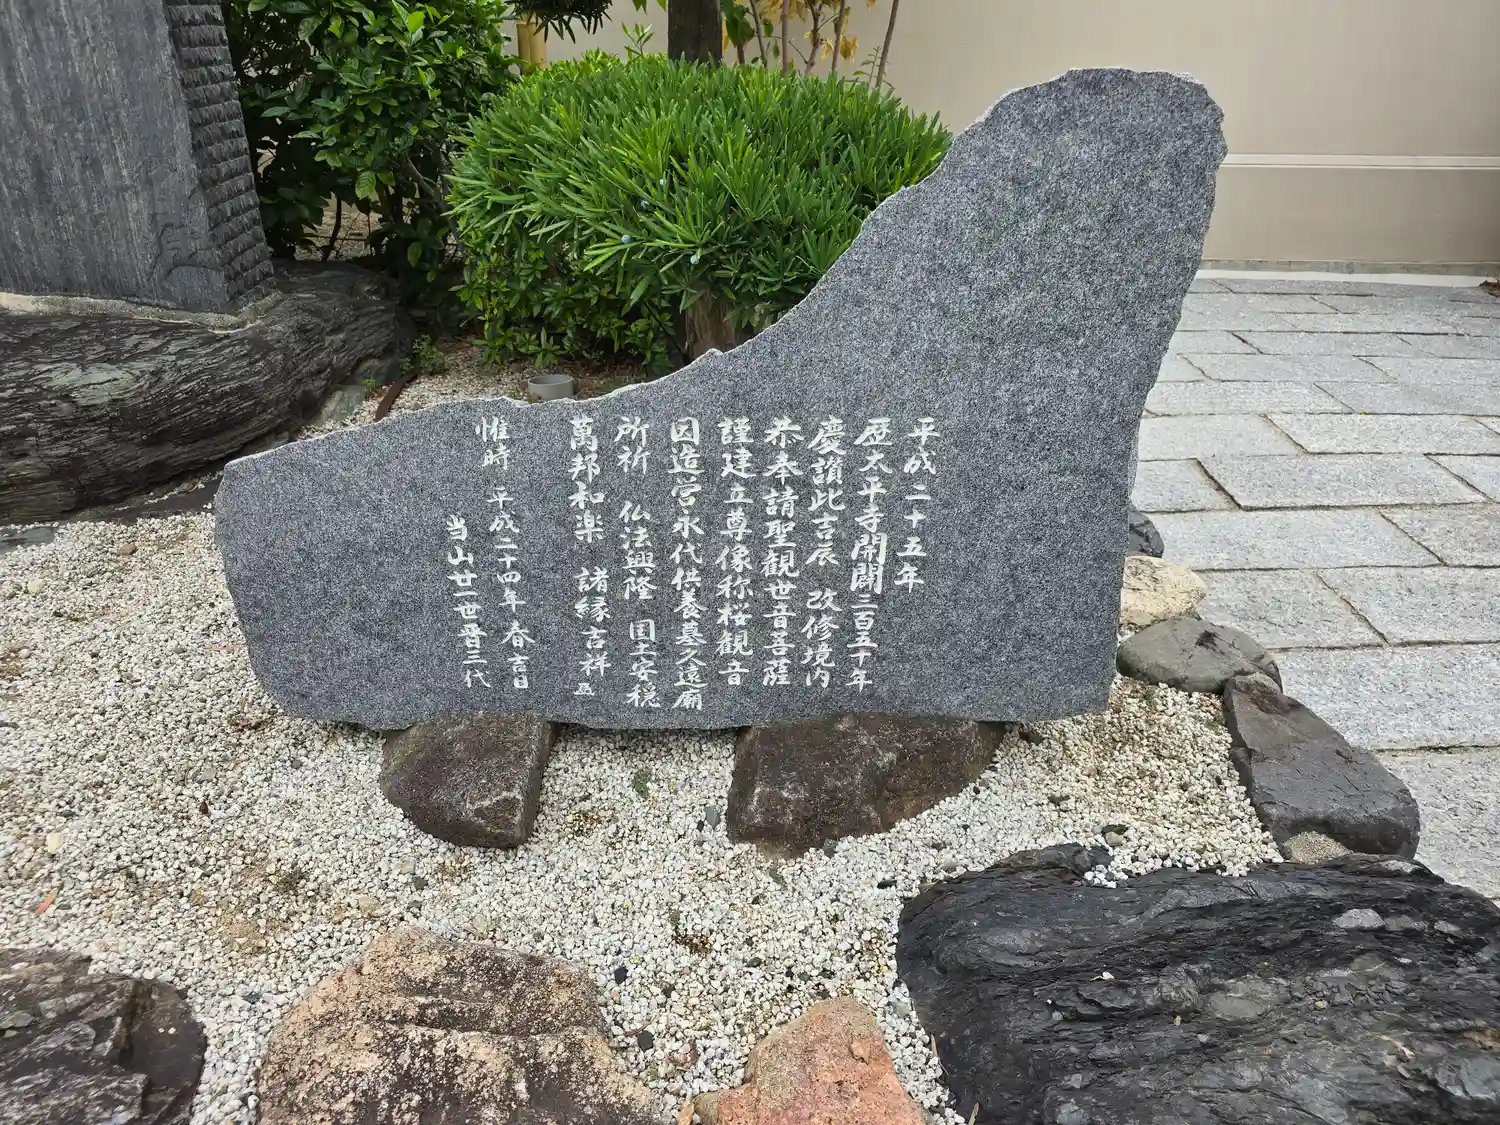 平成二十五年
歴太平寺開闢三百五十年
慶讃此吉辰 改修境内
恭奉請聖観世音菩薩
謹建立尊像称桜観音
因造営永代供養墓久遠廟
所祈 仏法興隆 国土安穏
萬邦和楽 諸縁吉祥
惟時 平成二十四年 春 吉日
当山廿一世晋三代